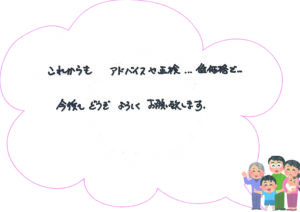 これからも アドバイスや点検...低価格で...
今後も どうぞ よろしく お願い致します。